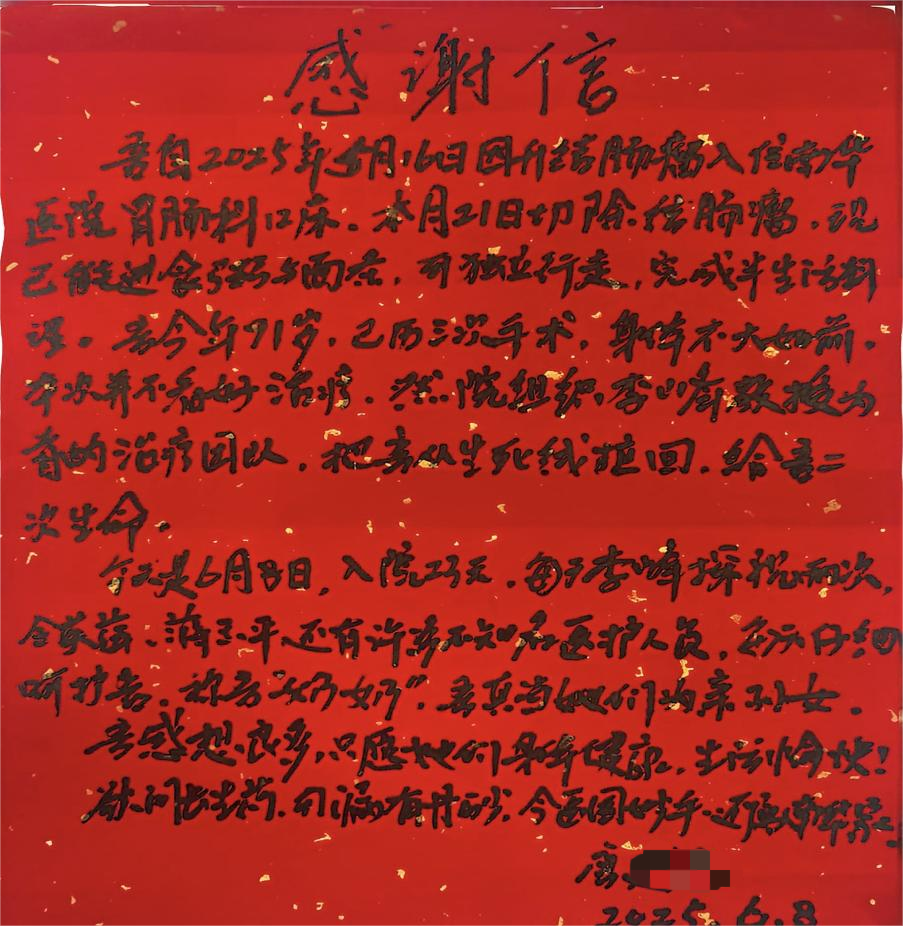 感谢信
吾自2025年5月16日因升结肠瘤入住南华
医院胃肠科12床。本月21日切除结肠瘤,现
已能进食与面条,可独立行走,完成半生活料
理。吾今年71岁,已历三次手术,身体不大如前,
本次并不看好治疗。然院组织李峰教授为
首的治疗团队,把吾从生死线拖回,给吾二
次生命。
今天是6月8日,入院23天,每天李峰探视两次,
令、蒋玉平、还有许多不知名医护人员,每天仔细
呵护吾。称吾“奶奶”,吾真当她们为亲子女。
吾感想良多,只愿她们身体健康,生活愉快!
欲问长生药,何有丹砂,今医圣手,还
唐
2025.6.8